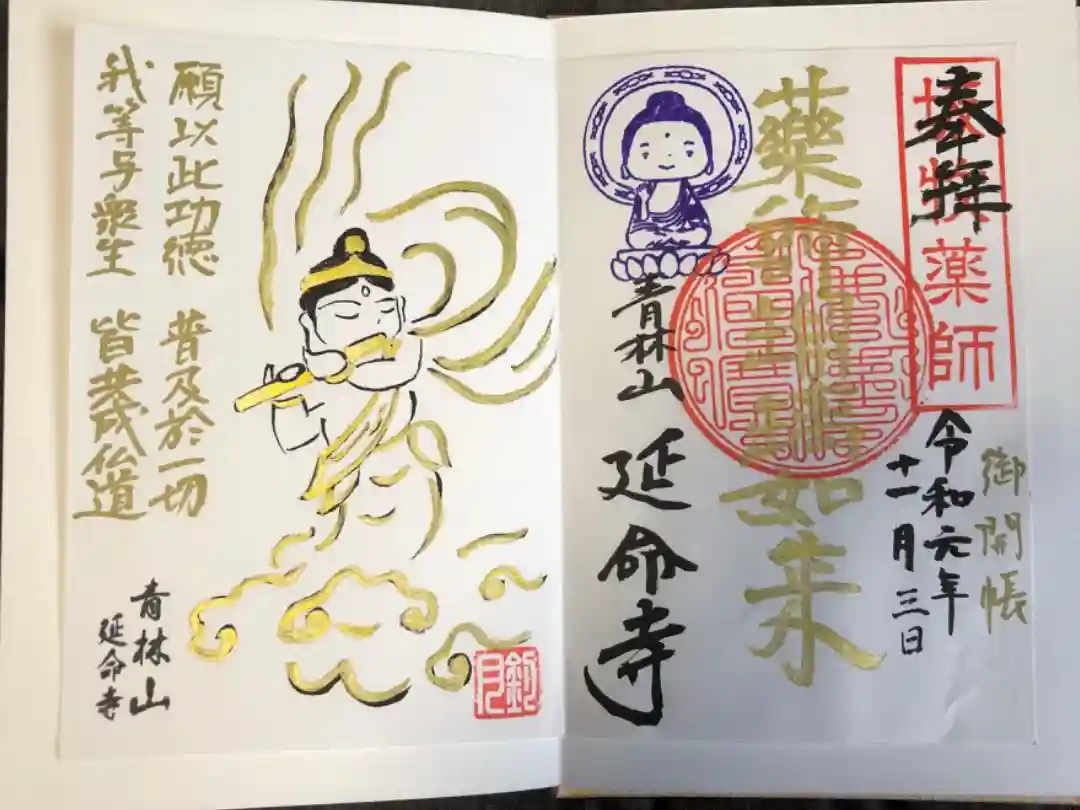 御開帳
奉拝
薬師
令和元年
十一月三日
藥 如来
青林山 延命寺
願以此功徳 普及於一切
我等与衆生 皆共成仏道
青林山
延命寺